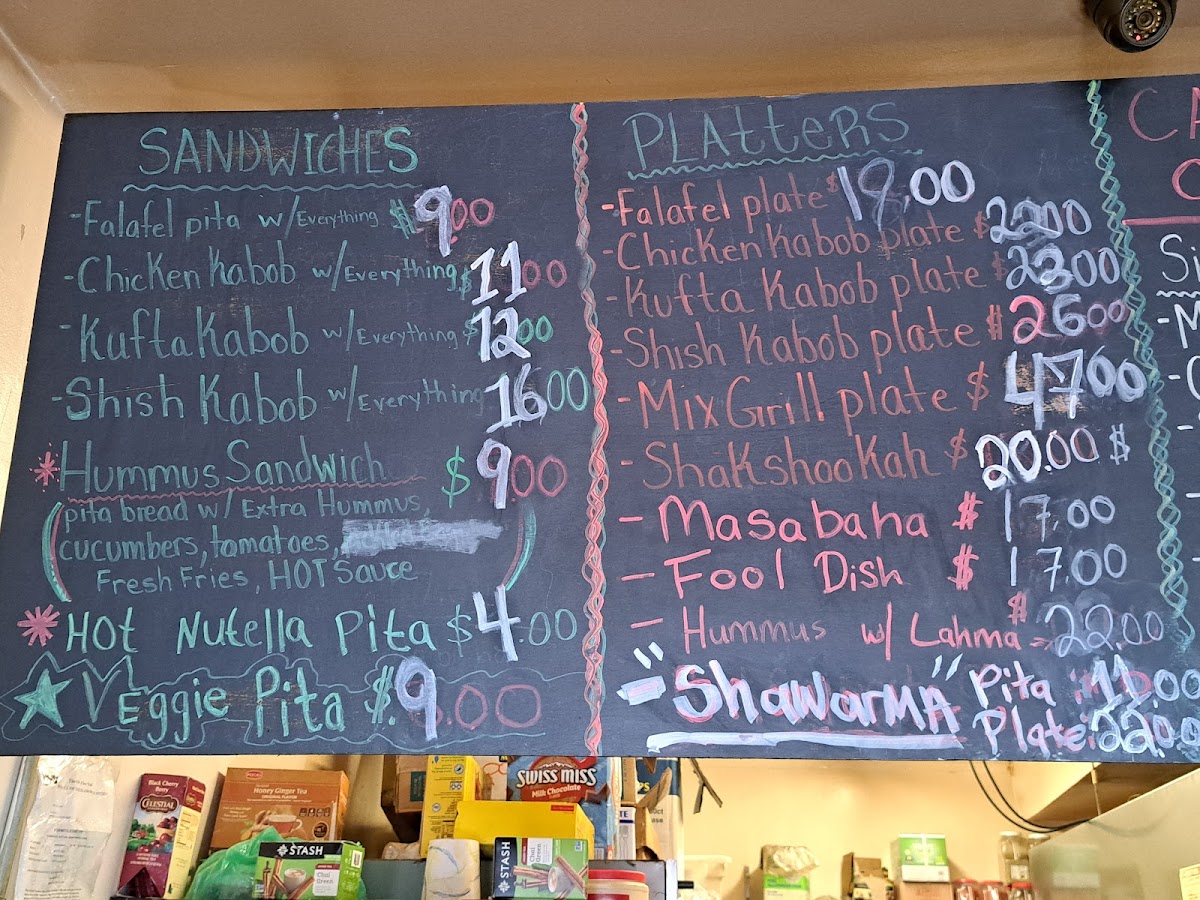 SANDWICHES
-Falafel pita w/Everything $9.00
-Chicken Kabob w/Everything $11.00
-Kufta Kabob w/Everything $12.00
-Shish Kabob w/Everything 16.00
*Hummus Sandwich $9.00
(pita bread w/ Extra Hummus,
cucumbers, tomatoes,
Fresh Fries, HOT Sauce)
*HOT Nutella Pita $4.00
Veggie Pita $.9.00
PLAtteRS
-Falafel plate $18.00
-Chicken Kabob plate $22.00
-Kufta Kabob plate $23.00
-Shish Kabob plate $26.00
-Mix Grill plate $47.00
-ShaKshooKah $20.00 $
-Masabaha $17.00
-Fool Dish $17.00
-Hummus w/ Lahma $22.00
-"ShaWarMA" Pita 11.00
Plate: 22.00
CA
Si
Black Cherry Berry
CELESTIAL
Honey Ginger Tea
ORIGINAL FLAVOR
STASH
Chai Green
SWISS MISS
Milk Chocolate
STASH
Chai Green